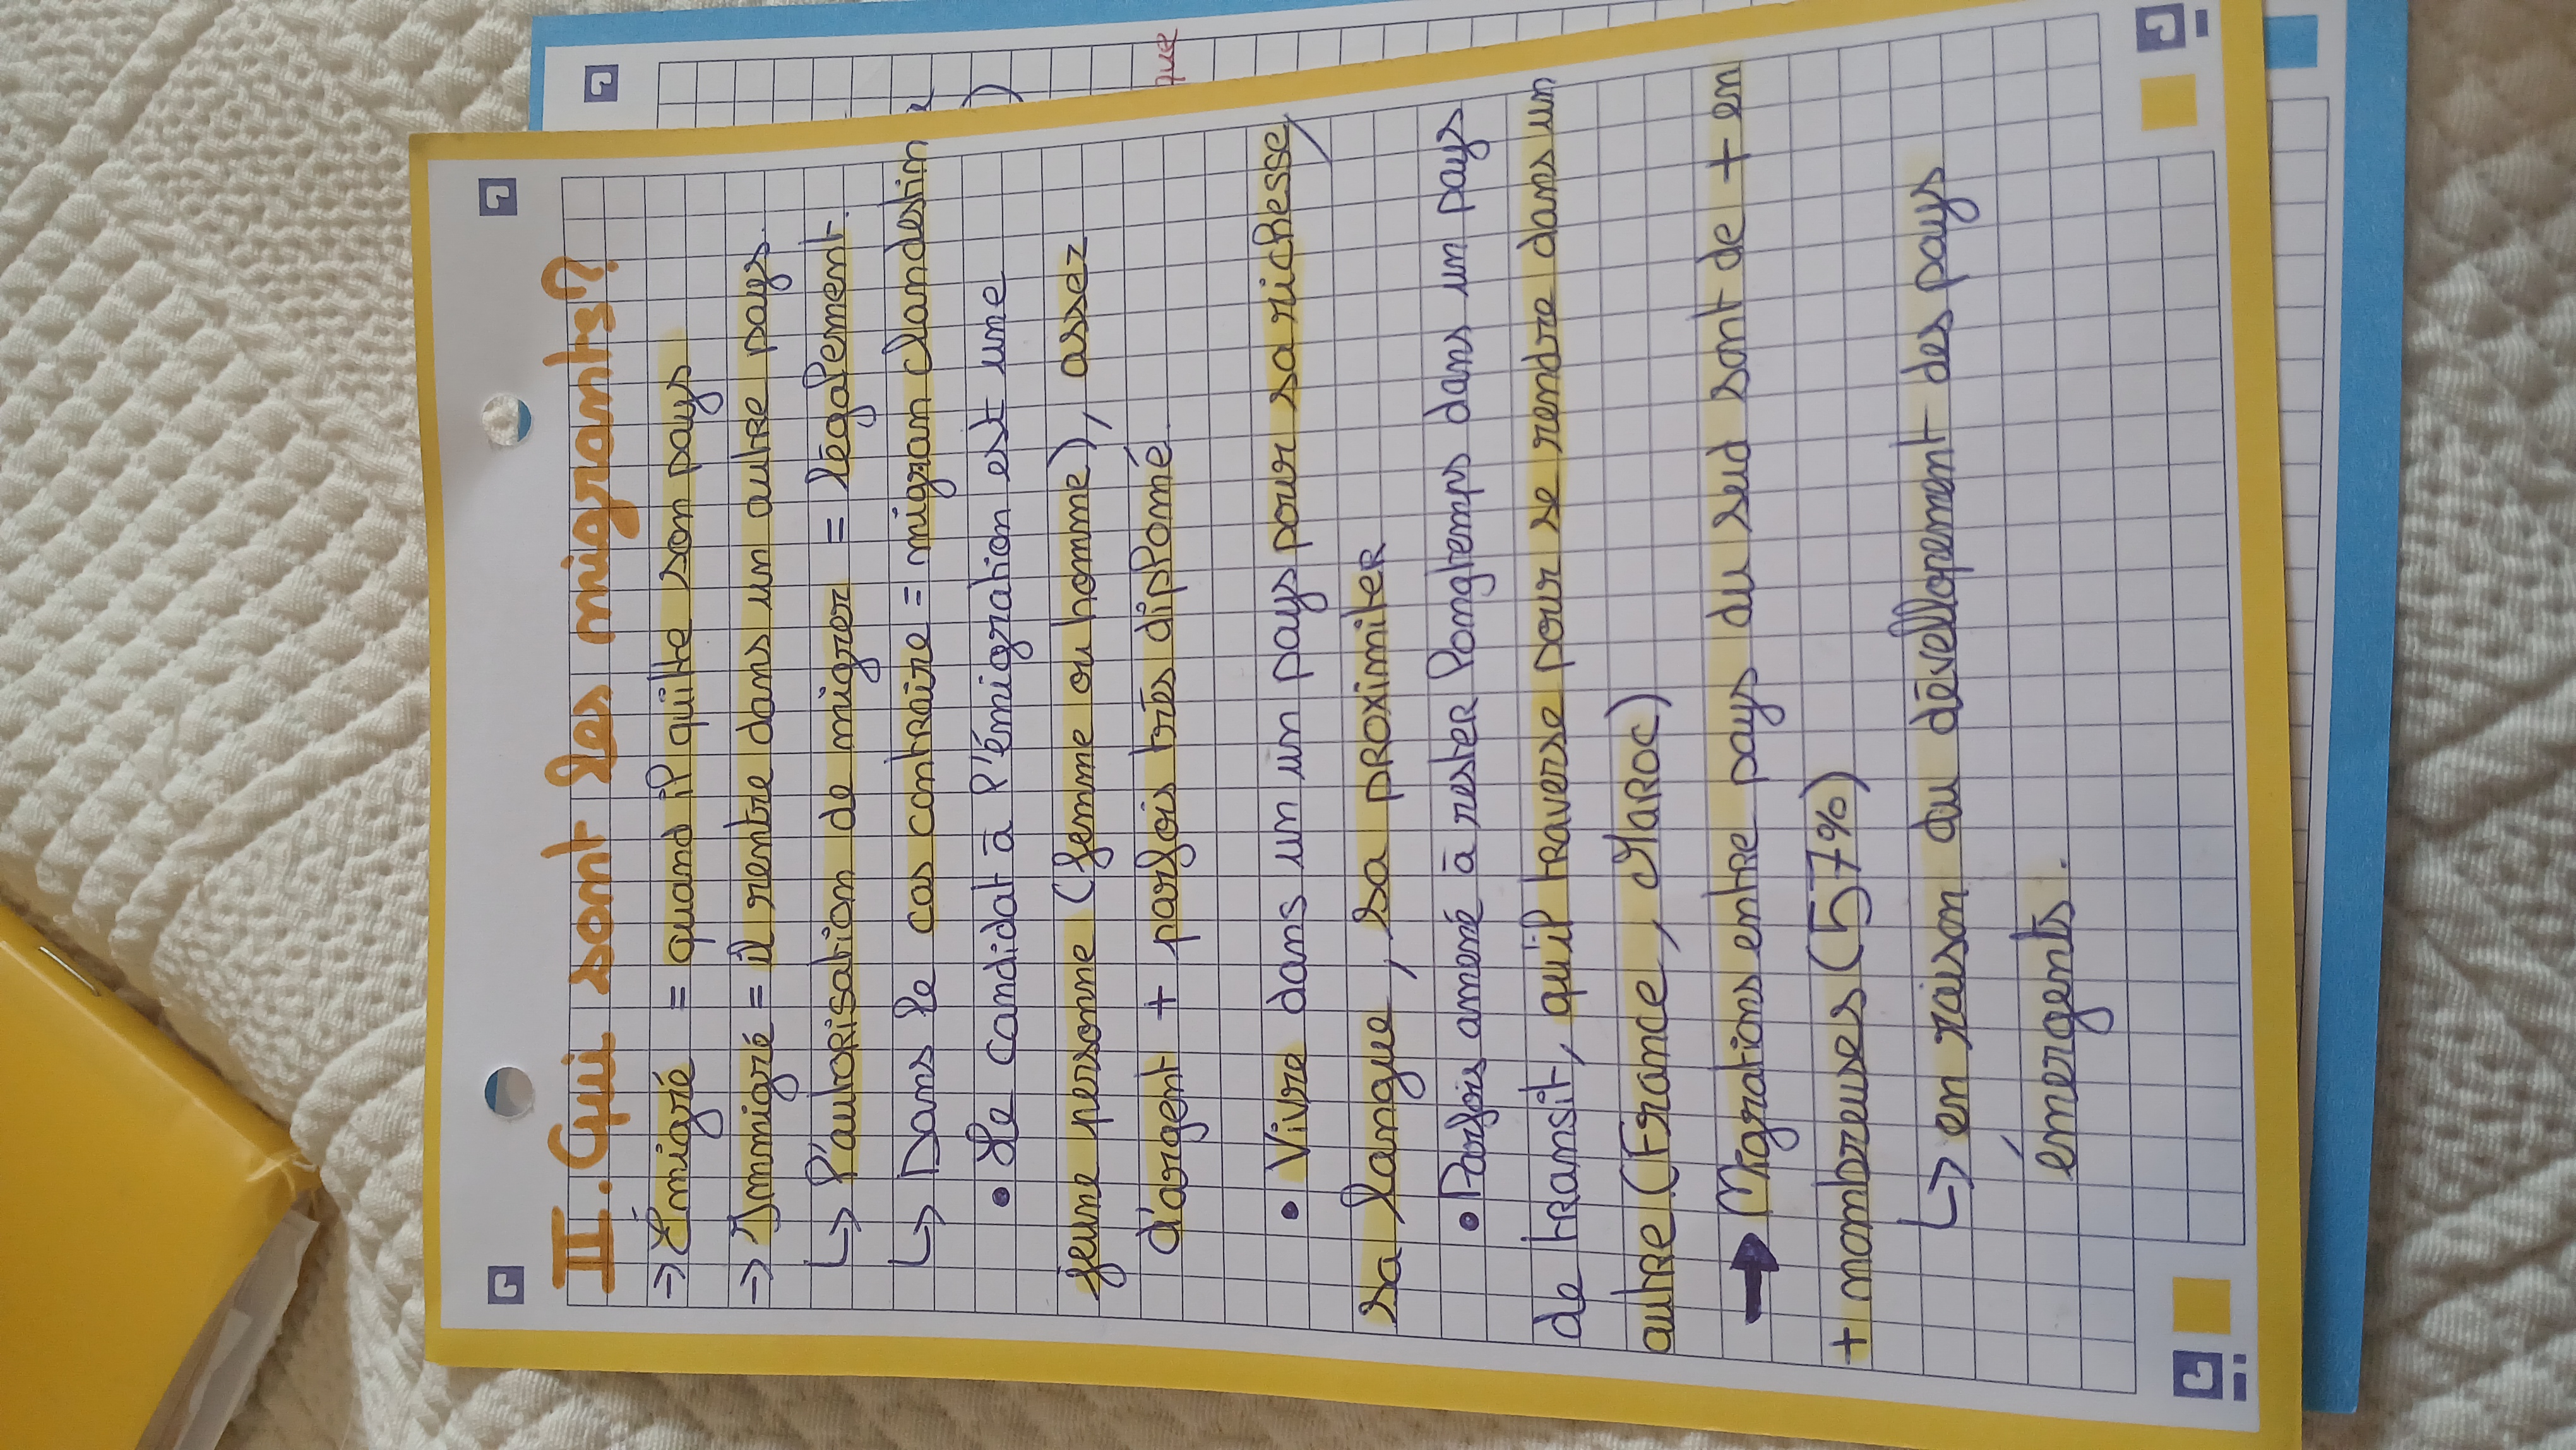 II. Qui sont les migrants?
→ Émigré = quand il quitte son pays
→ Immigré = il rentre dans un autre pays.
↳ l'autorisation de migrer = légalement.
↳ Dans le cas contraire = migran clandestin
• Le candidat à l'émigration est une
jeune personne (femme ou homme), assez
d'argent + parfois très diplomé.
• Vivre dans un un pays pour sa richesse,
sa langue, sa proximiter
• Parfois amené à rester longtemps dans un pays
de transit, qu'il traverse pour se rendre dans un
autre (France, Maroc)
→ Migrations entre pays du sud sont de + en
+ nombreuses (57%)
↳ en raison du dévellopement des pays
émergents.
que